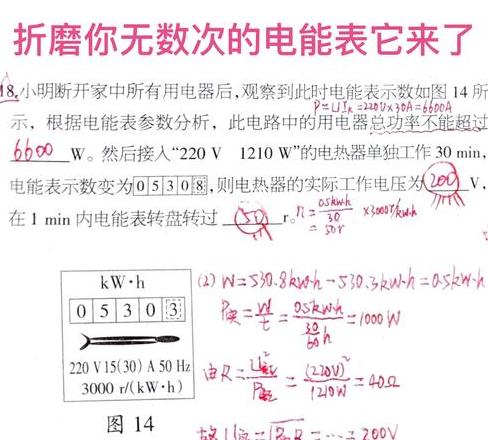 折磨你无数次的电能表它来了
18.小明断开家中所有用电器后,观察到此时电能表示数如图 14 所
P=UI_R=220V×30A=6600A
示，根据电能表参数分析，此电路中的用电器总功率不能超过
6600 W。然后接入“220 V 1210 W”的电热器单独工作 30 min,
电能表示数变为05308,则电热器的实际工作电压为 200 V,
在 1 min 内电能表转盘转过 50 r。n=0.5kw·h/30×3000r/kw·h
=50r
kW·h
05303
220 V 15(30) A 50 Hz
3000 r/(kW·h)
图 14
(2) W=530.8kw·h-530.3kw·h=0.5kw·h
P实=W/t=0.5kw·h/30/60h=1000W
由R=U额²/P额=(220V)²/1210W=40Ω
故U实=√P实R=…=200V